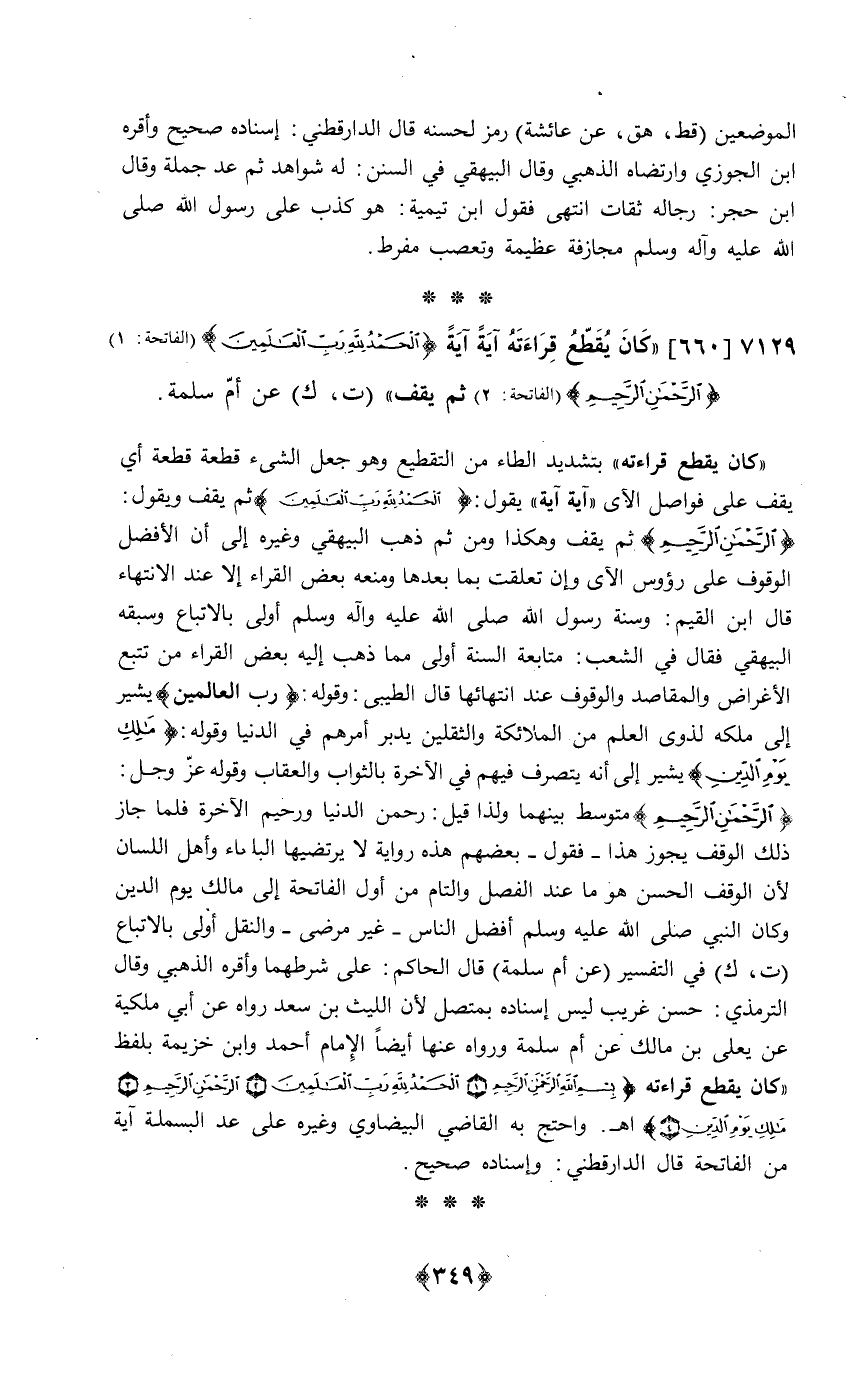 الموضعين (قط، هق، عن عائشة) رمز لحسنه قال الدارقطني: إسناده صحيح وأقره
ابن الجوزي وارتضاه الذهبي وقال البيهقي في السنن: له شواهد ثم عد جملة وقال
ابن حجر: رجاله ثقات انتهى فقول ابن تيمية: هو كذب على رسول الله صلى
الله عليه وآله وسلم مجازفة عظيمة وتعصب مفرط.
* * *
٧١٢٩ [٦٦٠] «كَانَ يُقَطِّعُ قِرَاءَتَهُ آيَةً آيَةً ﴿ٱلْحَمْدُ لِلَّهِ رَبِّ ٱلْعَـٰلَمِينَ﴾ (الفاتحة: ١)
﴿ٱلرَّحْمَـٰنِ ٱلرَّحِيمِ﴾ (الفاتحة: ٢) ثم يقف» (ت، ك) عن أمّ سلمة.
«كان يقطع قراءته» بتشديد الطاء من التقطيع وهو جعل الشىء قطعة قطعة أي
يقف على فواصل الآى «آية آية» يقول: ﴿ ٱلْحَمْدُ لِلَّهِ رَبِّ ٱلْعَـٰلَمِينَ ﴾ ثم يقف ويقول:
﴿ٱلرَّحْمَـٰنِ ٱلرَّحِيمِ﴾ ثم يقف وهكذا ومن ثم ذهب البيهقي وغيره إلى أن الأفضل
الوقوف على رؤوس الآى وإن تعلقت بما بعدها ومنعه بعض القراء إلا عند الانتهاء
قال ابن القيم: وسنة رسول الله صلى الله عليه وآله وسلم أولى بالاتباع وسبقه
البيهقي فقال في الشعب: متابعة السنة أولى مما ذهب إليه بعض القراء من تتبع
الأغراض والمقاصد والوقوف عند انتهائها قال الطيبى: وقوله: ﴿ رب العالمين ﴾ يشير
إلى ملكه لذوى العلم من الملائكة والثقلين يدبر أمرهم في الدنيا وقوله: ﴿ مَـٰلِكِ
يَوْمِ ٱلدِّينِ ﴾ يشير إلى أنه يتصرف فيهم في الآخرة بالثواب والعقاب وقوله عزّ وجل:
﴿ ٱلرَّحْمَـٰنِ ٱلرَّحِيمِ ﴾ متوسط بينهما ولذا قيل: رحمن الدنيا ورحيم الآخرة فلما جاز
ذلك الوقف يجوز هذا ـ فقول ـ بعضهم هذه رواية لا يرتضيها البلغاء وأهل اللسان
لأن الوقف الحسن هو ما عند الفصل والتام من أول الفاتحة إلى مالك يوم الدين
وكان النبي صلى الله عليه وسلم أفضل الناس ـ غير مرضى ـ والنقل أولى بالاتباع
(ت، ك) في التفسير (عن أم سلمة) قال الحاكم: على شرطهما وأقره الذهبي وقال
الترمذي: حسن غريب ليس إسناده بمتصل لأن الليث بن سعد رواه عن أبي ملكية
عن يعلى بن مالك عن أم سلمة ورواه عنها أيضاً الإمام أحمد وابن خزيمة بلفظ
«كان يقطع قراءته ﴿ بِسْمِ ٱللَّهِ ٱلرَّحْمَـٰنِ ٱلرَّحِيمِ ۝١ ٱلْحَمْدُ لِلَّهِ رَبِّ ٱلْعَـٰلَمِينَ ۝٢ ٱلرَّحْمَـٰنِ ٱلرَّحِيمِ ۝٣
مَـٰلِكِ يَوْمِ ٱلدِّينِ ۝٤ ﴾ اهـ. واحتج به القاضي البيضاوي وغيره على عد البسملة آية
من الفاتحة قال الدارقطني: وإسناده صحيح.
* * *
﴿٣٤٩﴾